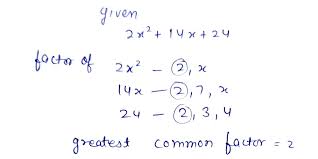 given
2x² + 14x + 24
factor of 2x² – 2, x
14x – 2, 7, x
24 – 2, 3, 4
greatest common factor = 2